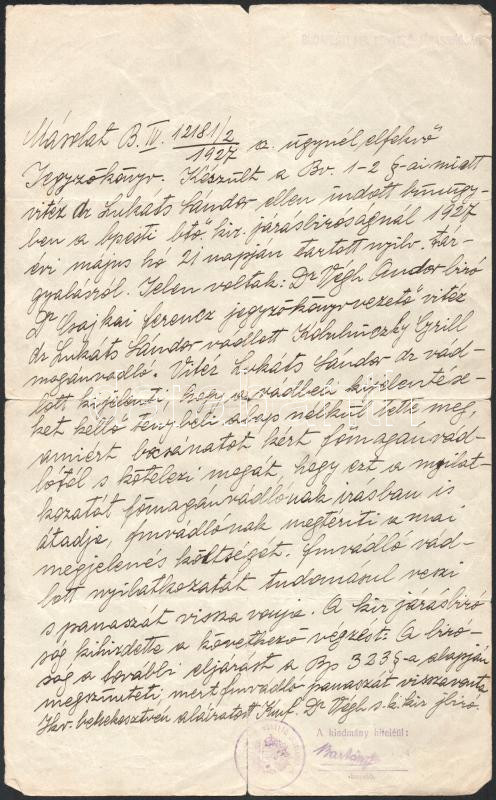 Másolat B. IV. 12181/2
1927 sz. ügynél elfekvő
Jegyzőkönyv. Készült a Bv. 1-2 §-ai miatt
vitéz dr Lukáts Sándor ellen indott bűnügy-
ben a bpesti btő kir. járásbiróságnál 1927
évi május hó 21 napján tartott nyilv. tár-
gyalásról. Jelen voltak: Dr Végh Andor biró
Dr Csajkai Ferencz jegyzőkönyvvezető vitéz
dr Lukáts Sándor vádlott Cyrill
magánvádló. Vitéz Lukáts Sándor dr vád-
lott kijelenti, hogy a vádbeli kijelentése-
ket kellő ténybeli alap nélkül tette meg,
amiért bocsánatot kért főmagánvád-
lótól s kötelezi magát, hogy ezt a nyilat-
kozatát főmagánvádlónak irásban is
átadja, fmvádlónak megtériti a mai
megjelenés költségét. Fmvádló vád-
lott nyilatkozatát tudomásul veszi
s panaszát vissza vonja. A kir járásbiró
ság kihirdette a következő végzést: A biró-
ság a további eljárást a Bp 323 §-a alapján
megszünteti mert fmvádló panaszát visszavonta
Jkv. befekesztvén aláiratott Kmf. Dr Végh s.k. kir jbiró.
A kiadmány hiteléül: